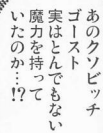 あのクソビッチ
ゴースト
実はとんでもない
魔力を持って
いたのか…!?